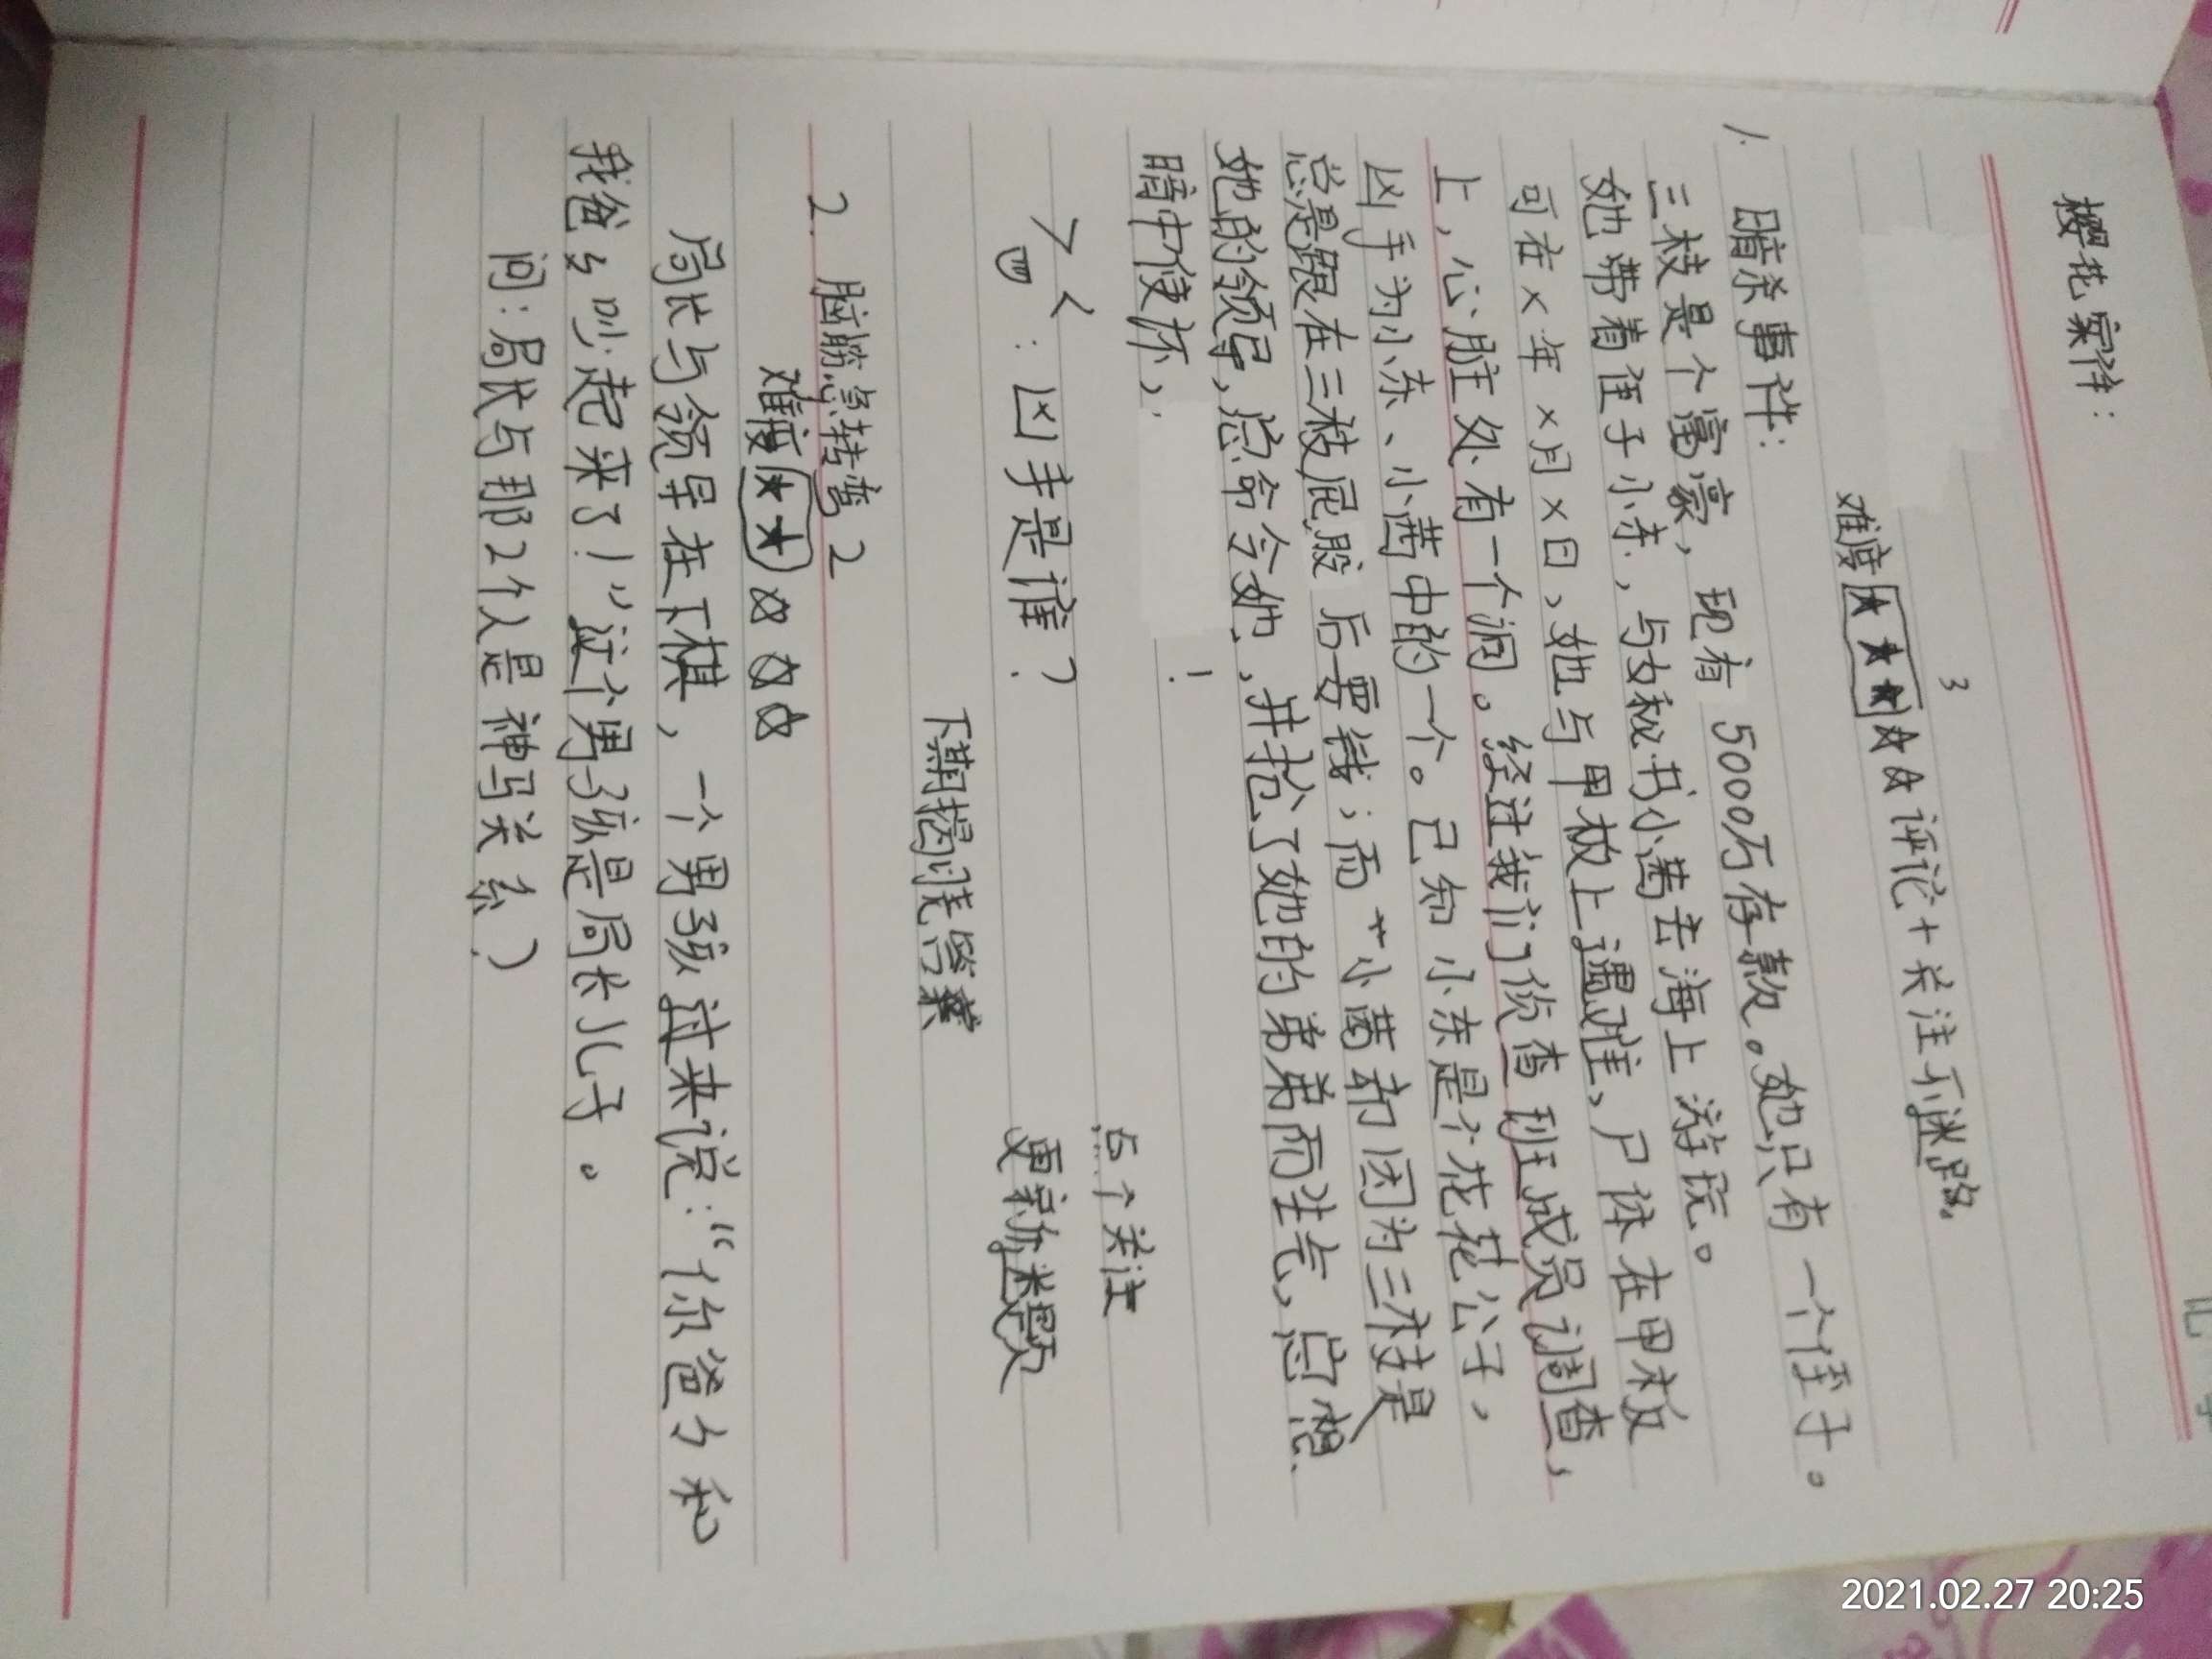 记事
樱花案件:
3
难度★★★☆☆评论+关注不迷路。
1. 暗杀事件:
三枝是个富豪, 现有5000万存款。她只有一个侄子。
她带着侄子小东, 与女秘书小茜去海上游玩。
可在×年×月×日, 她与甲板上遇难, 尸体在甲板
上, 心脏处有一个洞。经过我们侦查班成员调查,
凶手为小东、小茜中的一个。已知小东是个花花公子,
总是跟在三枝屁股后要钱; 而小茜却因为三枝是
她的领导, 总命令她, 并抢了她的弟弟而生气, 总想
暗中使坏,
!
点个关注
: 凶手是谁?
更新你谜题
下期揭晓答案
2. 脑筋急转弯2
难度★★☆☆☆
局长与领导在下棋, 一个男孩过来说:“你爸爸和
我爸爸吵起来了!”这个男孩是局长儿子。
问: 局长与那2个人是神马关系?
2021.02.27 20:25